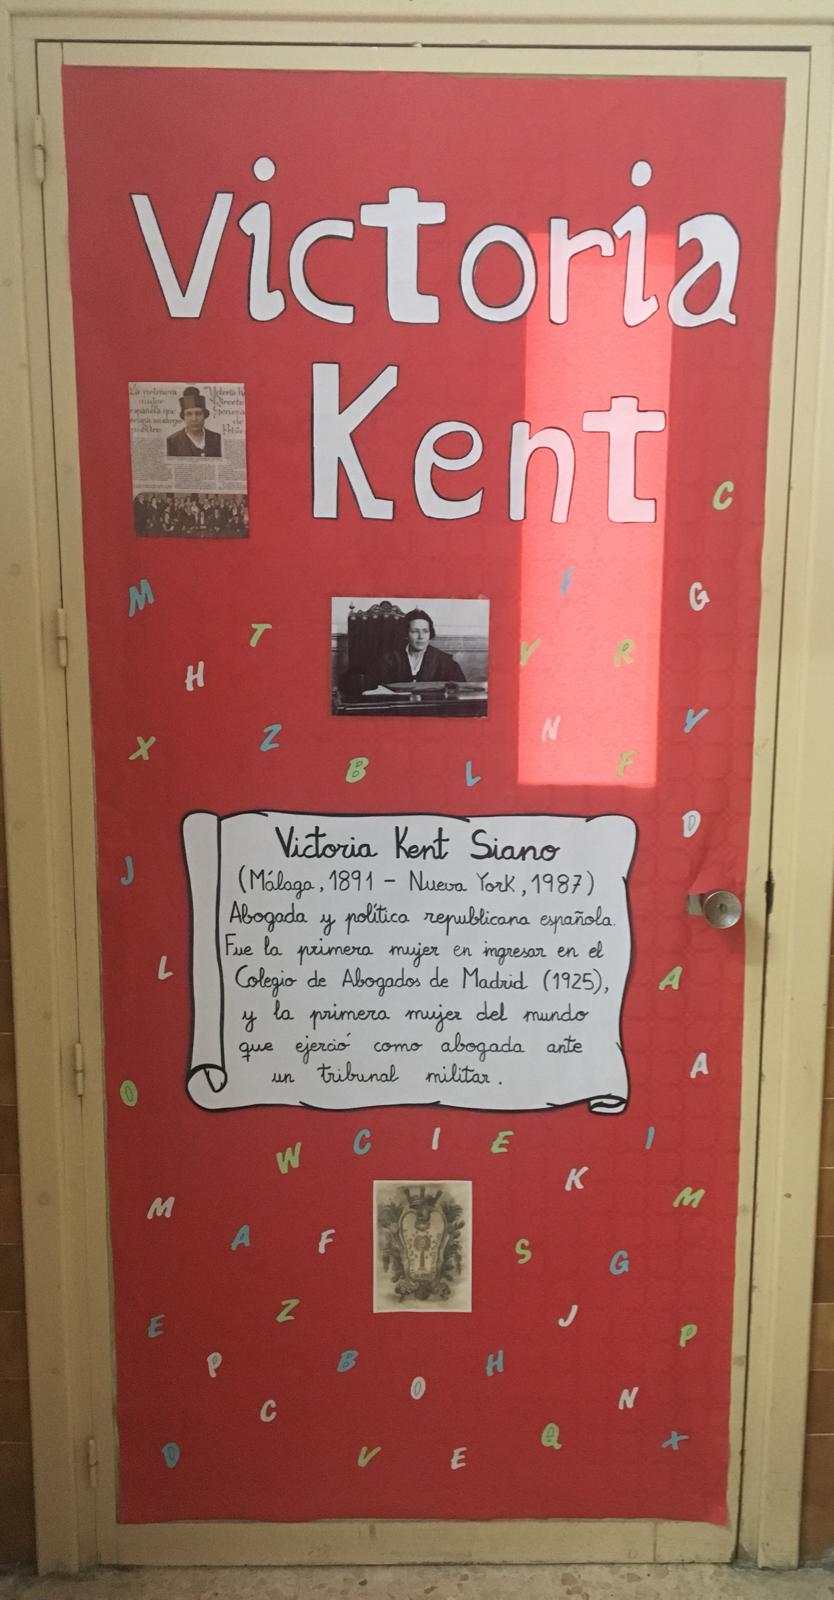 Victoria
Kent
La primera
mujer
española que
"Victoria K
de
C
M
F
G
T
Y
R
H
N
Y
X
Z
B
L
F
D
J
Victoria Kent Siano
(Málaga, 1891 - Nueva York, 1987)
Abogada y política republicana española.
Fue la primera mujer en ingresar en el
Colegio de Abogados de Madrid (1925),
y la primera mujer del mundo
que ejerció como abogada ante
un tribunal militar.
L
A
A
O
W C I E I
K
M
M
A F S G
Z J
E P
P B H
O
C N
D V E Q X